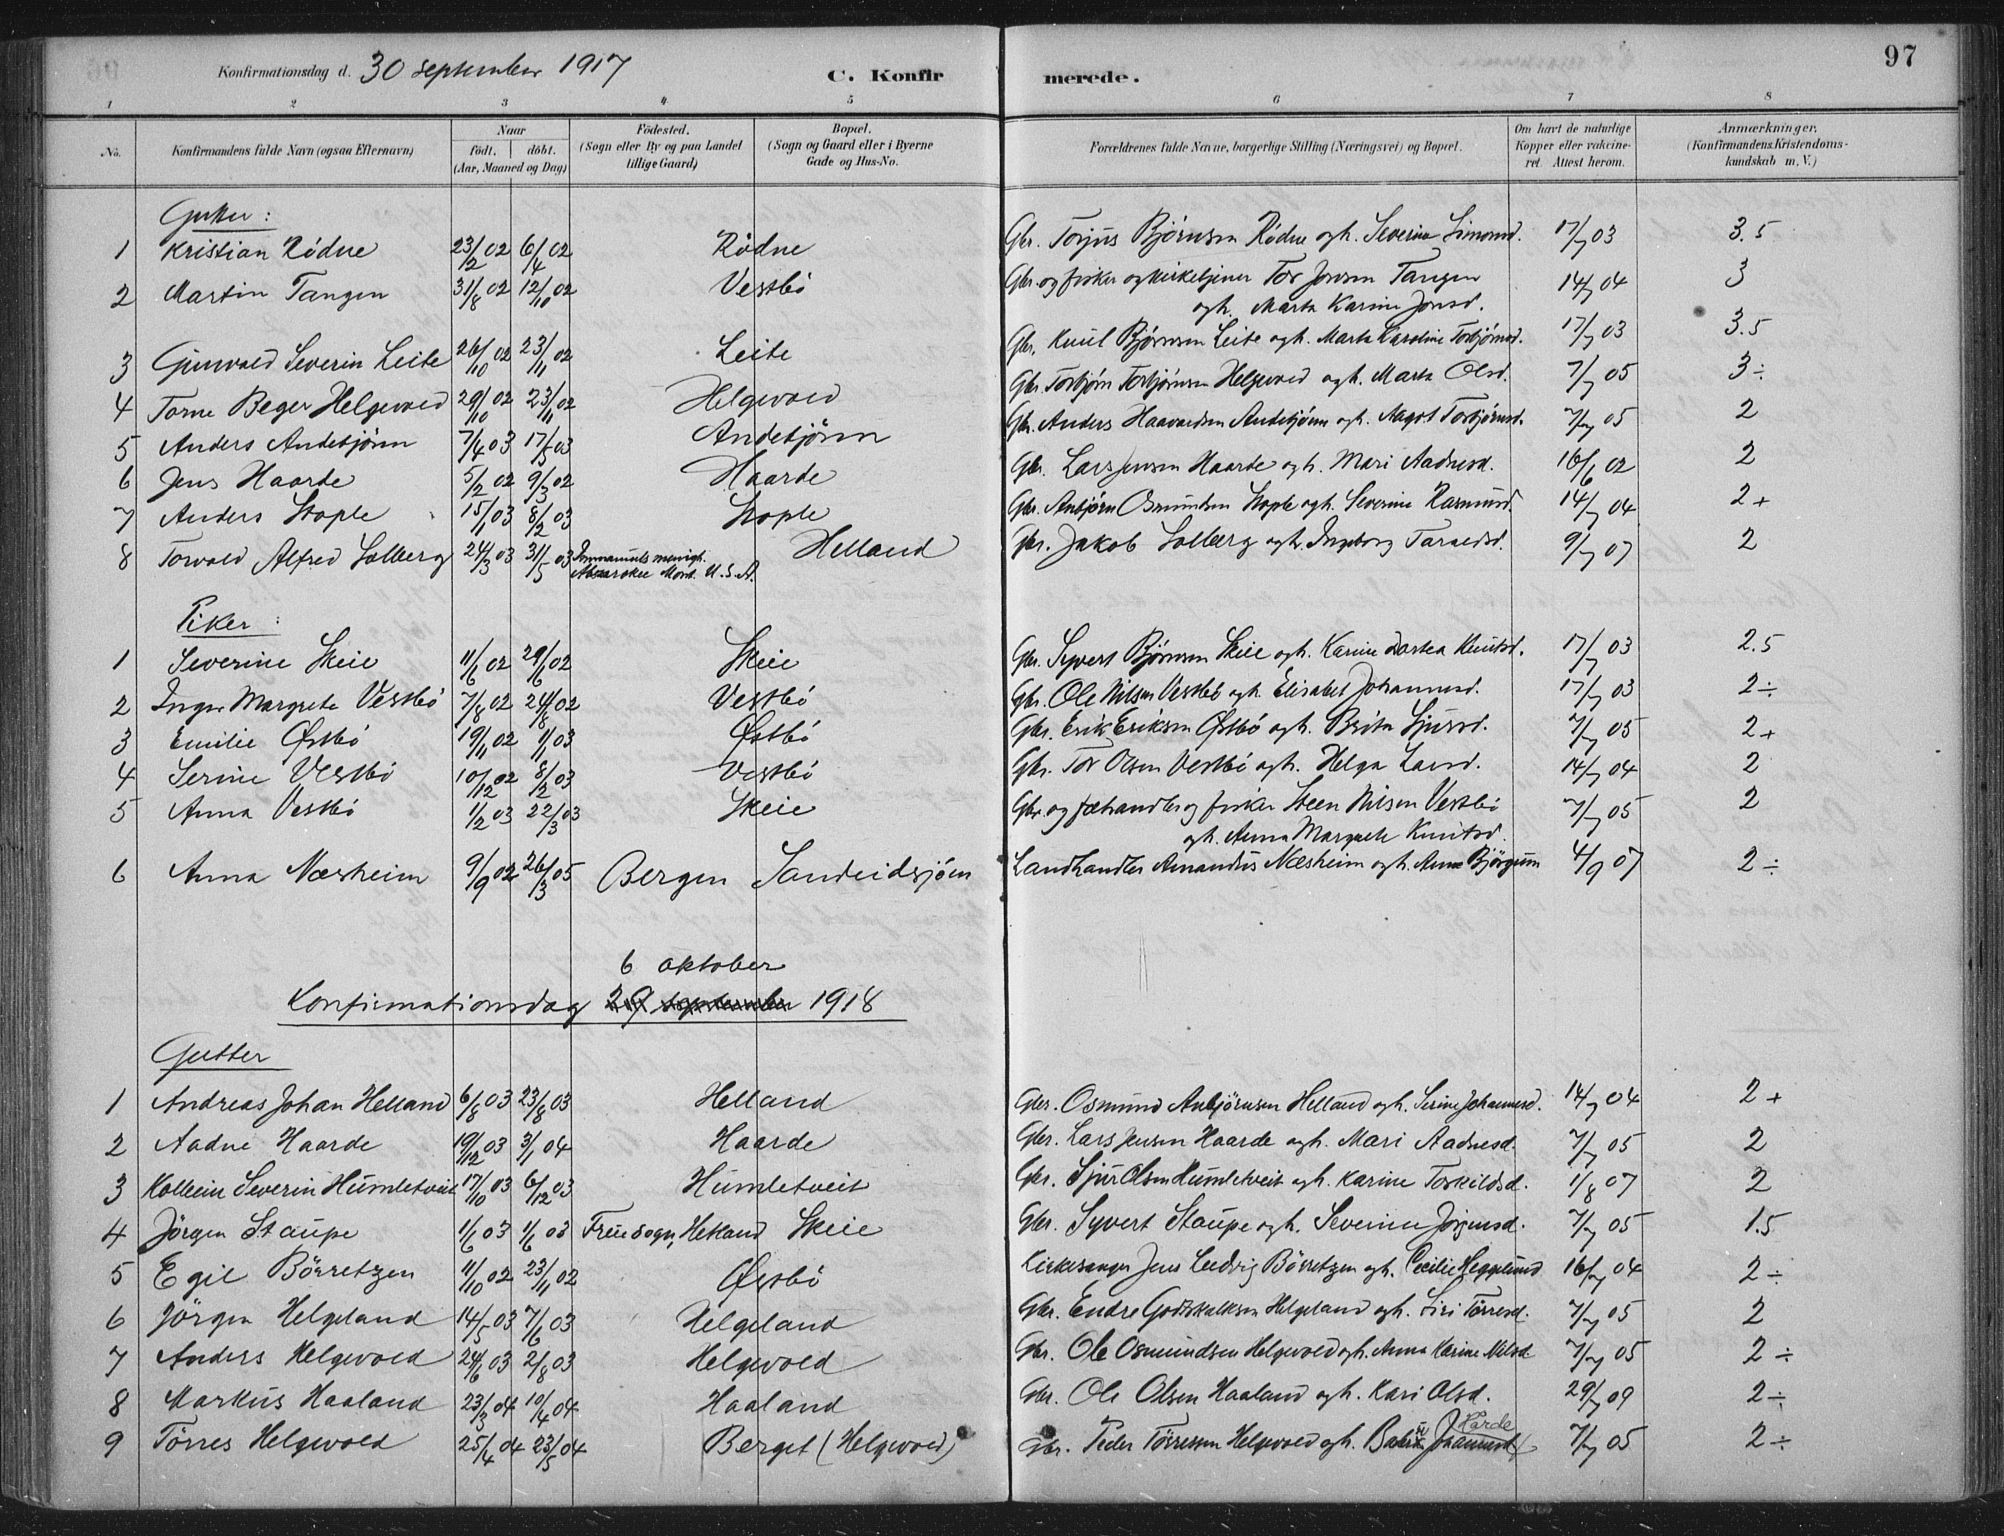 97
Konfirmationsdag d. 30 september 1917 C. Konfirmerede.
1 2 3 4 5 6 7 8
No. Konfirmandens fulde Navn (ogsaa Efternavn) Naar født. døbt. (Aar, Maaned og Dag) Födested. (Sogn eller By og paa Landet tillige Gaard.) Bopæl. (Sogn og Gaard eller i Byerne Gade og Hus-No. Forældrenes fulde Navne, borgerlige Stilling (Næringsvei) og Bopæl. Om havt de naturlige Kopper eller vaccineret. Attest herom. Anmærkninger. (Konfirmandens Kristendomskundskab m. V.)
Gutter:
1 Kristian Rødne 23/2 02 6/4 02 Rødne Gbr. Torjus Bjørnsen Rødne og h. Severine Simonsd. 17/7 03 3.5
2 Martin Tangen 31/8 02 12/10 02 Vestbö Gbr. og fisker og kirketjener Tor Jonsen Tangen
og h. Marta Karine Jonsd. 14/7 04 3
3 Gunvald Severin Leite 26/10 02 23/11 02 Leite Gbr. Knut Bjørnsen Leite og h. Marta Karoline Torbjörnsd. 17/7 03 3.5
4 Torne Beger Helgevold 29/10 02 23/11 02 Helgevold Gbr. Torbjørn Torbjørnsen Helgevold og h. Marta Olsd. 7/7 05 3÷
5 Anders Andebjönn 7/4 03 17/5 03 Andebjönn Gbr. Anders Haavardsen Andebjönn og h. Aagot Torbjörnsd. 7/7 05 2
6 Jens Haarde 5/2 02 9/3 02 Haarde Gbr. Lars Jensen Haarde og h. Mari Aadnesd. 16/6 02 2
7 Anders Stople 15/1 03 8/2 03 Stople Gbr. Anbjørn Osmundsen Stople og h. Severine Rasmusd. 14/7 04 2+
8 Torvald Alfred Solberg 24/3 03 31/5 03 Immanuels menigh. Absarokee Mont. U.S.A. Helland Gbr. Jakob Solberg og h. Ingeborg Taraldsd. 9/7 07 2
Piker:
1 Severine Skeie 11/6 02 29/6 02 Skeie Gbr. Syvert Bjørnsen Skeie og h. Karine Dortea Knutsd. 17/7 03 2.5
2 Inger Margrete Vestbö 7/8 02 24/8 02 Vestbö Gbr. Ole Nilsen Vestbö og h. Elisabet Johannesd. 17/7 03 2÷
3 Emilie Østbö 19/11 02 1/1 03 Østbö Gbr. Erik Eriksen Østbö og h. Brita Sjursd. 7/7 05 2+
4 Serine Vestbö 10/12 02 8/2 03 Vestbö Gbr. Tor Olsen Vestbö og h. Helga Larsd. 14/7 04 2
5 Anna Vestbö 1/2 03 22/3 03 Skeie Gbr. og fæhandler og fisker Steen Nilsen Vestbö
og h. Anna Margrete Knutsd. 7/7 05 2
6 Anna Næsheim 9/9 02 26/3 05 Bergen Sandeidsjöen Landhandler Amandus Næsheim og h. Anna Björgum 4/9 07 2÷
6 oktober
Konfirmationsdag 29 september 1918
Gutter
1 Andreas Johan Helland 6/8 03 23/8 03 Helland Gbr. Osmund Anbjörnsen Helland og h. Serine Johannesd. 14/7 04 2+
2 Aadne Haarde 19/12 03 3/1 04 Haarde Gbr. Lars Jensen Haarde og h. Mari Aadnesd. 7/7 05 2
3 Kolbein Severin Humletveit 17/10 03 6/12 03 Humletveit Gbr. Sjur Olsen Humletveit og h. Karine Torkildsd. 1/8 07 2
4 Jörgen Staupe 1/6 03 1/6 03 Fruesogn, Hetland Skeie Gbr. Syvert Staupe og h. Severine Jörgensd. 7/7 05 1.5
5 Egil Börretzen 11/10 02 23/11 02 Østbö Kirkesanger Jens Ludvig Börretzen og h. Cecilie Hegglund 16/7 04 2÷
6 Jörgen Helgeland 14/5 03 7/6 03 Helgeland Gbr. Endre Godskalksen Helgeland og h. Siri Törresd. 7/7 05 2
7 Anders Helgevold 24/6 03 2/8 03 Helgevold Gbr. Ole Osmundsen Helgevold og h. Anna Karine Nilsd. 7/7 05 2÷
8 Markus Haaland 23/3 04 10/4 04 Haaland Gbr. Ole Olsen Haaland og h. Kari Olsd. 29/7 09 2÷
9 Törres Helgevold 25/4 04 23/5 04 Berget (Helgevold) Gbr. Peder Törressen Helgevold og h. Johannesd. Harde 7/7 05 2÷